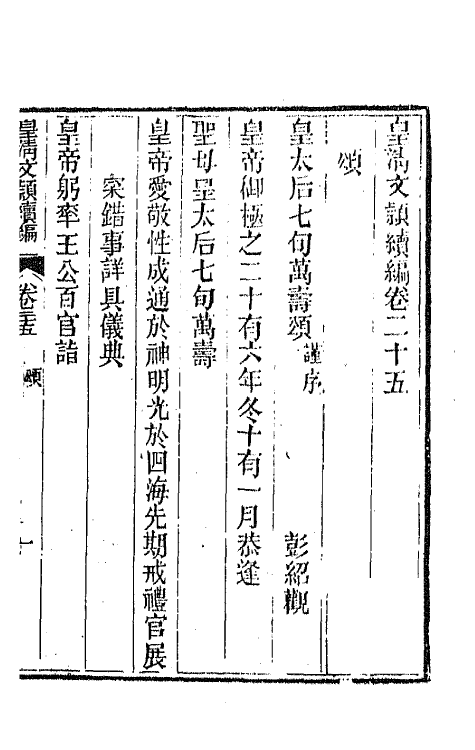 皇淸文穎續編卷二十五
頌
皇太后七旬萬壽頌謹序 彭紹觀
皇帝御極之二十有六年冬十有一月恭逢
聖母皇太后七旬萬壽
皇帝愛敬性成通於神明光於四海先期戒禮官展
寀錯事詳具儀典
皇帝躬率王公百官詣
皇淸文穎續編 卷二十五 頌 一